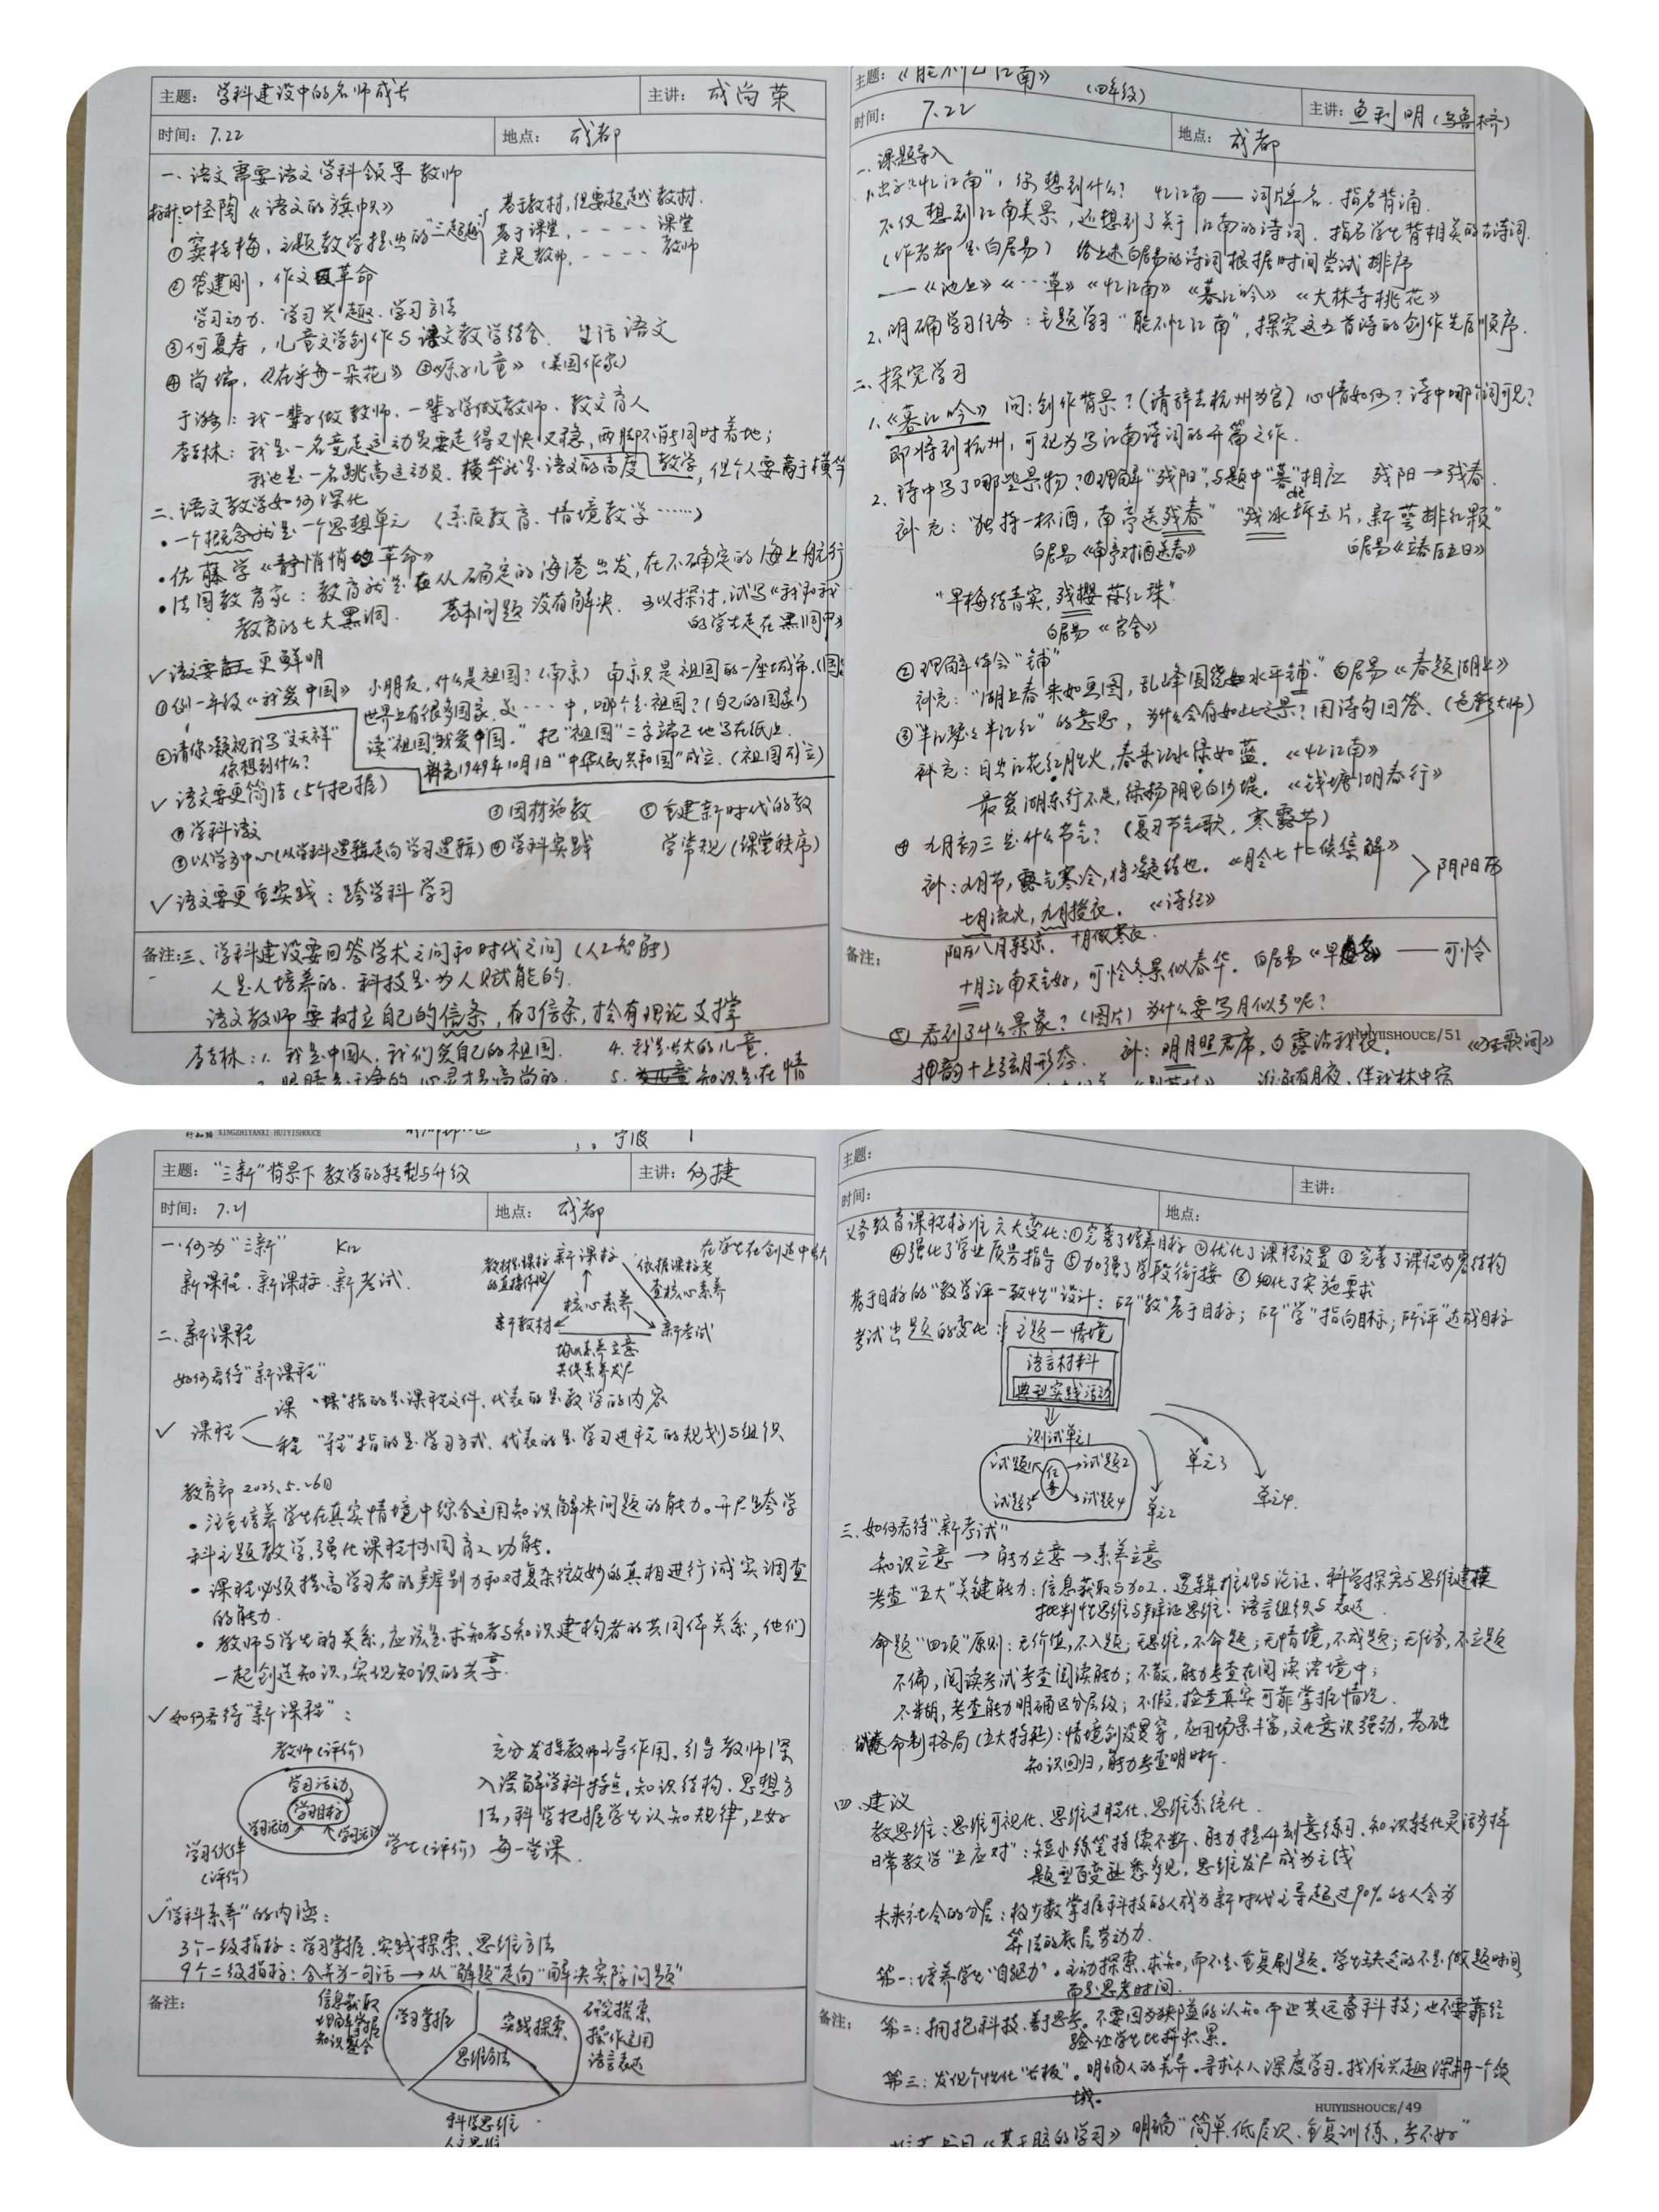 主题: 学科建设中的名师成长 主讲: 成尚荣
时间: 7.22 地点: 成都
一、语文需要语文学科领导教师
叶圣陶《语文的旗帜》
①窦桂梅,主题教学提出的"三超越" 基于教材,但要超越教材.
基于课堂,---- 课堂
立足教师,---- 教师
②管建刚,作文革命
学习动力、学习兴趣、学习方法
③何夏寿,儿童文学创作与语文教学结合. 生活语文
④尚瑞,《在乎每一朵花》 (美国作家)
于漪:我一辈子做教师、一辈子学做教师、教文育人
李吉林:我是一名竞走运动员要走得又快又稳,两脚不能同时着地;
我也是一名跳高运动员.横竿就是语文的高度 教学,但个人要高于横竿
二、语文教学如何深化
·一个概念就是一个思想单元 (素质教育、情境教学……)
·佐藤学《静悄悄的革命》
·法国教育家:教育就是在从确定的海港出发,在不确定的海上航行
教育的七大黑洞. 基本问题没有解决. 可以探讨,试写《我和我
的学生走在黑洞中》
✓语文要更鲜明
①例一年级《我爱中国》 小朋友,什么是祖国?(南京) 南京只是祖国的一座城市.
世界上有很多国家,这…中,哪个是祖国?(自己的国家)
读"祖国我爱中国." 把"祖国"二字端正地写在纸上.
②请你凝视我写"文天祥"
你想到什么?
补充1949年10月1日"中华人民共和国"成立.(祖国列立)
✓语文要更简洁(5个把握)
①学科课 ③因材施教 ⑤重建新时代的教
②以学为中心(从学科逻辑走向学习逻辑) ④学科实践 学常规(课堂秩序)
✓语文要更重实践:跨学科学习
备注: 三、学科建设要回答学术之问和时代之问(人工智能)
人是人培养的.科技是为人赋能的.
语文教师要树立自己的信条,有了信条,才会有理论支撑
李吉林:1. 我是中国人,我们爱自己的祖国. 4. 我是长大的儿童.
2. 眼睛是干净的,心灵才是高尚的. 5. 知识是在情
主题:《能不忆江南》 (四年级)
主讲: 鱼利明(乌鲁木齐)
时间: 7.22 地点: 成都
一、课题导入
1.出示"忆江南",你想到什么? 忆江南——词牌名.指名背诵.
不仅想到江南美景,还想到了关于江南的诗词.指名学生背相关的古诗词.
(作者都是白居易) 给上述白居易的诗词根据时间尝试排序
——《池上》《…草》《忆江南》《暮江吟》《大林寺桃花》
2、明确学习任务:主题学习"能不忆江南",探究这五首诗的创作先后顺序.
二、探究学习
1.《暮江吟》 问:创作背景?(请辞去杭州为官)心情如何?诗中哪个词可见?
即将到杭州,可视为写江南诗词的开篇之作.
2、诗中写了哪些景物?①理解"残阳",与题中"暮"相应 残阳→残春.
补充:"独持一杯酒,南亭送残春" "残冰坼玉片,新萼排红颗"
白居易《南亭对酒送春》 白居易《立春后五日》
"早梅结青实,残樱落红珠"
白居易《官舍》
②理解体会"铺"
补充:"湖上春来如画图,乱峰围绕水平铺" 白居易《春题湖上》
③"半江瑟瑟半江红"的意思,为什么会有如此之景?用诗句回答.(色彩大师)
补充:日出江花红胜火,春来江水绿如蓝.《忆江南》
最爱湖东行不足,绿杨阴里白沙堤.《钱塘湖春行》
④九月初三是什么节气?(复习节气歌,寒露节)
补:九月节,露气寒冷,将凝结也.《月令七十二候集解》
七月流火,九月授衣.《诗经》 阴阳历
阳历八月转凉. 十月做寒衣.
备注: 十月江南天气好,可怜冬景似春华.白居易《早冬》——可怜
⑤看到了什么景象?(图片)为什么要写月似弓呢?
HUIYIISHOUCE/51
押韵+上弦月形态. 补:明月照君席,白露沾我衣. 《狂歌词》
谁能有月夜,伴我林中宿
XINGZHIYANXI HUIYISHOUCE
宁波
主题: "三新"背景下教学的转型与升级 主讲: 何捷
时间: 7.21 地点: 成都
一、何为"三新" K12
新课程、新课标、新考试.
教材是课标的直接体现 新课标 依据课标考查核心素养
核心素养
新教材 新考试
在学生在创造中长大
共促素养发展
二、新课程
如何看待"新课程"
✓ 课程
课 "课"指的是课程文件,代表的是教学的内容
程 "程"指的是学习方式,代表的是学习进程的规划与组织
教育部 2023.5.26日
·注重培养学生在真实情境中综合运用知识解决问题的能力。开展跨学
科主题教学,强化课程协同育人功能.
·课程必须提高学习者的辨别力和对复杂微妙的真相进行诚实调查
的能力.
·教师与学生的关系,应该是求知者与知识建构者的共同体关系,他们
一起创造知识,实现知识的共享.
✓如何看待"新课程":
教师(评价)
学习活动
学习目标
学习活动 学习活动
学习伙伴 学生(评价)
(评价)
充分发挥教师主导作用,引导教师深
入理解学科特点,知识结构、思想方
法,科学把握学生认知规律,上好
每一堂课.
✓"学科素养"的内涵:
3个一级指标:学习掌握、实践探索、思维方法
9个二级指标:合并为一句话→从"解题"走向"解决实际问题"
备注: 信息获取
理解掌握
知识整合
学习掌握 实践探索 思维方法
研究探索
操作运用
语言表达
科学思维
人文思维
主题: 主讲:
时间: 地点:
义务教育课程标准六大变化:①完善了培养目标 ②优化了课程设置 ③完善了课程内容结构
④强化了学业质量指导 ⑤加强了学段衔接 ⑥细化了实施要求
基于目标的"教学评一致性"设计:所"教"基于目标;所"学"指向目标;所"评"达成目标
考试出题的变化: 主题—情境
语言材料
典型实践活动
测试单元1
试题1 试题2
任务
试题3 试题4
单元2 单元3 单元4.
三、如何看待"新考试"
知识立意→能力立意→素养立意
考查"五大"关键能力:信息获取与加工、逻辑推理与论证、科学探究与思维建模
批判性思维与辩证思维、语言组织与表达.
命题"四项"原则:无价值,不入题;无思维,不命题;无情境,不成题;无任务,不立题
不偏,阅读考试考查阅读能力;不散,能力考查在阅读语境中;
不糊,考查能力明确区分层级;不假,检查真实可靠掌握情况.
命制格局(五大特征):情境创设贯穿,应用场景丰富,文化意识强劲,基础
知识回归,能力考查明晰.
四、建议
教思维:思维可视化、思维过程化、思维系统化.
日常教学"五应对":短小练笔持续不断、能力提升刻意练习、知识转化灵活多样
题型百变熟悉多见,思维发展成为主线
未来社会的分层:极少数掌握科技的人成为新时代主导超过90%的人会为
算法的底层劳动力.
第一:培养学生"自驱力".主动探索、求知,而不是重复刷题.学生缺乏的不是做题时间
而是思考时间.
备注: 第二:拥抱科技、善思考.不要因为狭隘的认知而让其远离科技;也不要靠经
验让学生比拼积累.
第三:发现个性化"长板".明确人的差异.寻求个人深度学习.找准兴趣深耕一个领
域.
HUIYIISHOUCE/49
《基于脑的学习》 明确"简单、低层次、重复训练,考不好"